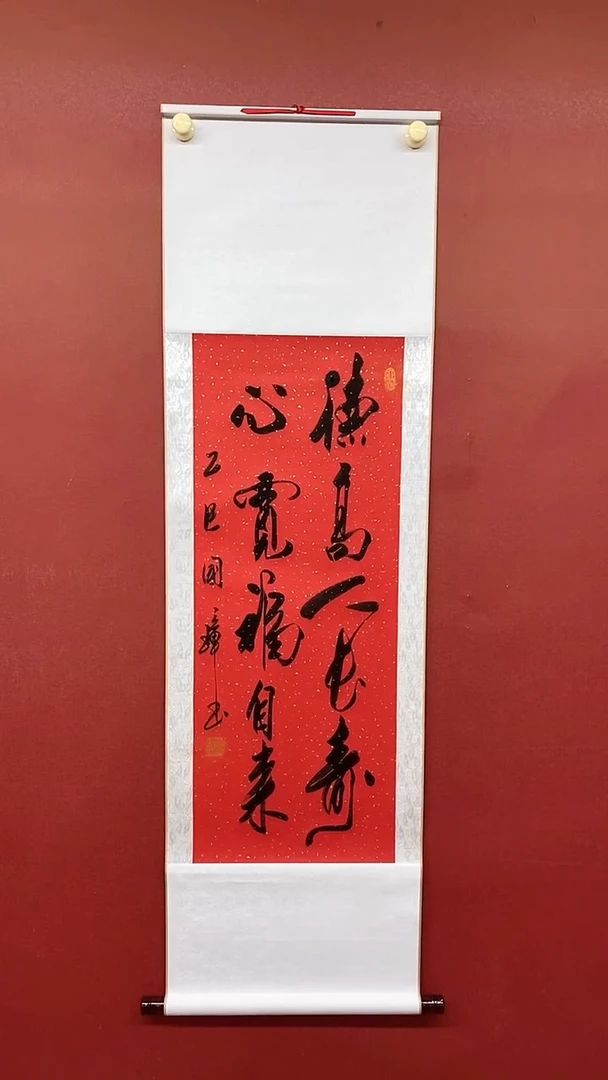 德高人长寿
心宽福自来
乙巳国璋书